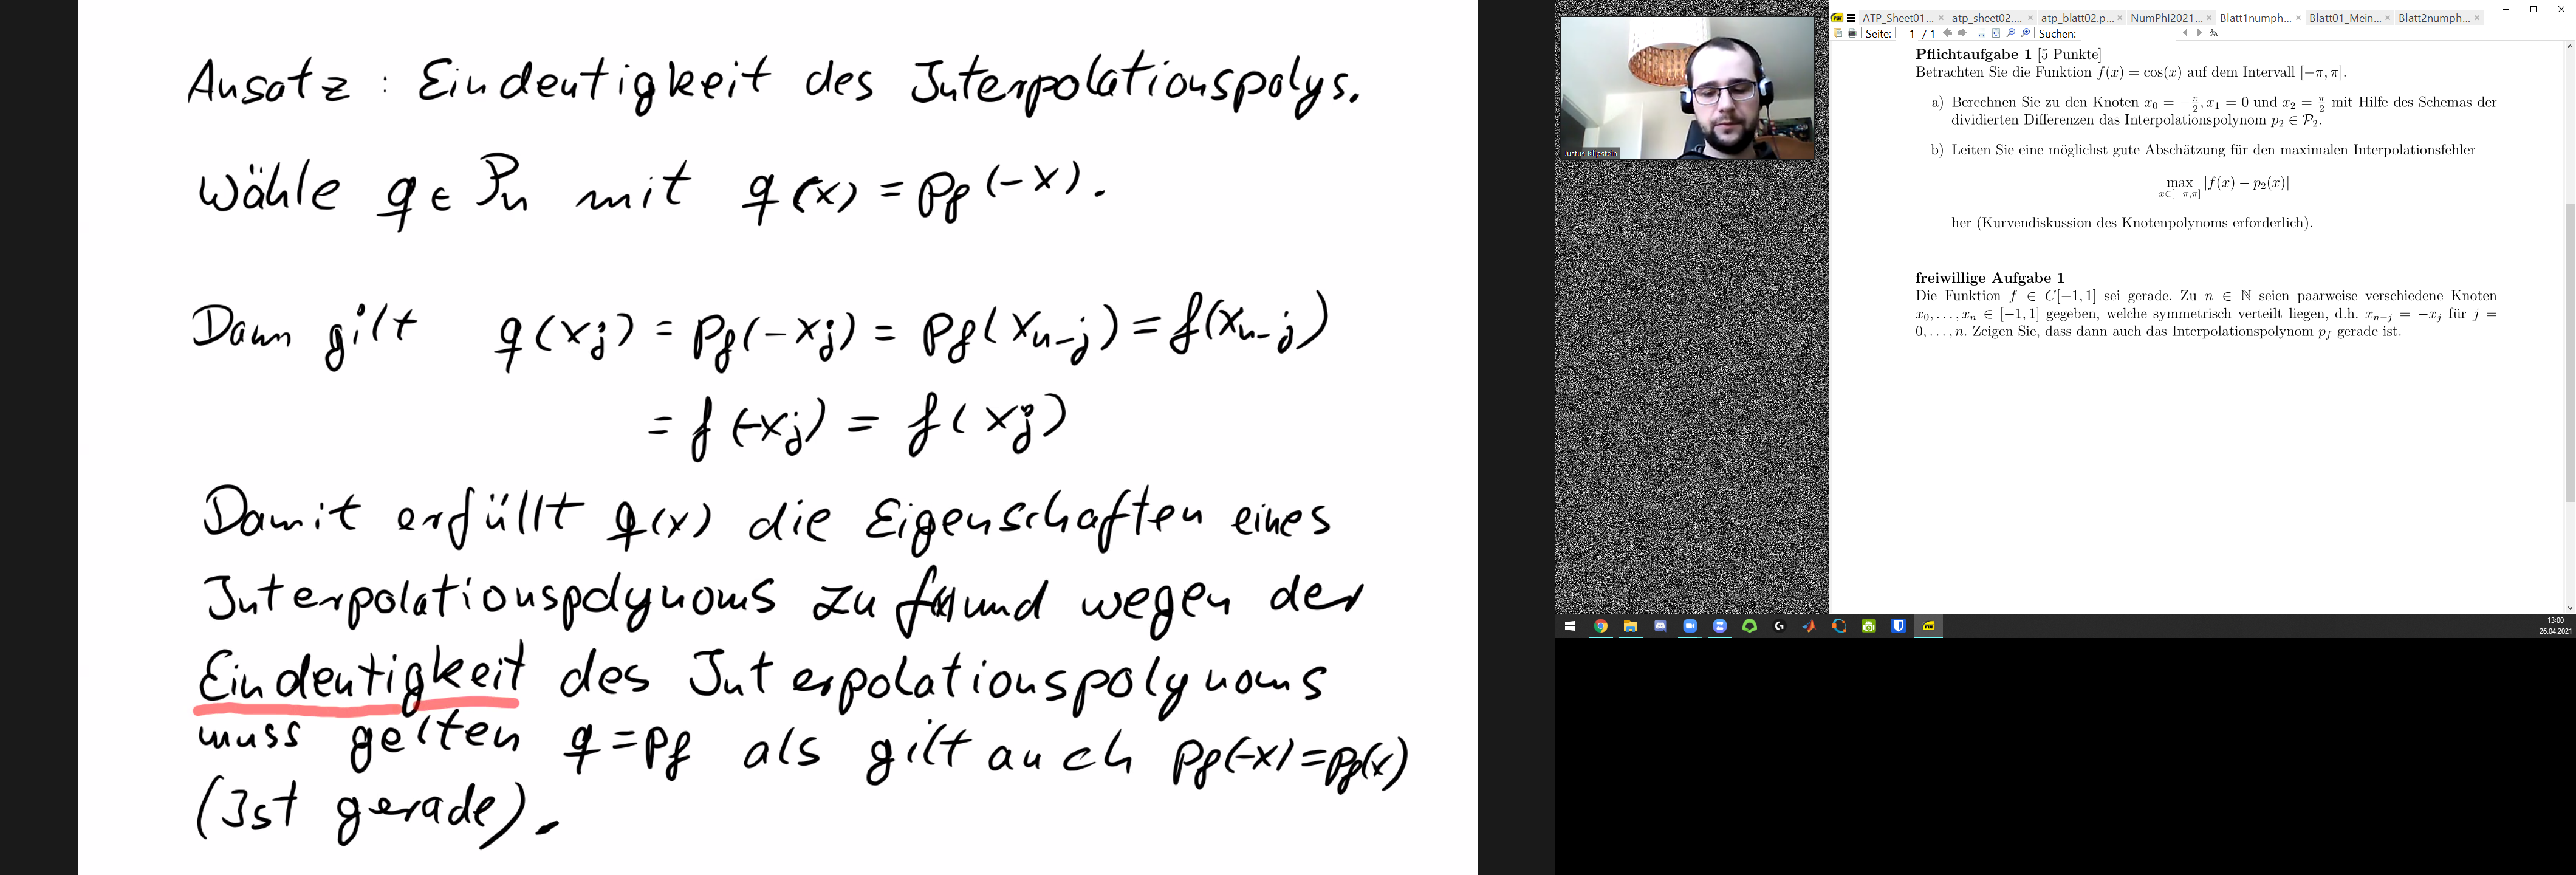 Ansatz : Eindeutigkeit des Interpolationspolys.
Wähle q ∈ Pn mit q(x) = pf(-x).
Dann gilt q(xj) = pf(-xj) = pf(xn-j) = f(xn-j)
= f(-xj) = f(xj)
Damit erfüllt q(x) die Eigenschaften eines
Interpolationspolynoms zu und wegen der
Eindeutigkeit des Interpolationspolynoms
muss gelten q = pf als gilt auch pf(-x) = pf(x)
(Ist gerade).
Justus Klipstein
ATP_Sheet01... × atp_sheet02.... × atp_blatt02.p... × NumPhI2021... × Blatt1numph... × Blatt01_Mein... × Blatt2numph... ×
Seite: 1 / 1 Suchen:
Pflichtaufgabe 1 [5 Punkte]
Betrachten Sie die Funktion f(x) = cos(x) auf dem Intervall [−π, π].
a) Berechnen Sie zu den Knoten x0 = −π/2, x1 = 0 und x2 = π/2 mit Hilfe des Schemas der
dividierten Differenzen das Interpolationspolynom p2 ∈ P2.
b) Leiten Sie eine möglichst gute Abschätzung für den maximalen Interpolationsfehler
max |f(x) − p2(x)|
x∈[−π,π]
her (Kurvendiskussion des Knotenpolynoms erforderlich).
freiwillige Aufgabe 1
Die Funktion f ∈ C[−1, 1] sei gerade. Zu n ∈ ℕ seien paarweise verschiedene Knoten
x0, . . . , xn ∈ [−1, 1] gegeben, welche symmetrisch verteilt liegen, d.h. xn−j = −xj für j =
0, . . . , n. Zeigen Sie, dass dann auch das Interpolationspolynom pf gerade ist.
13:00
26.04.2021